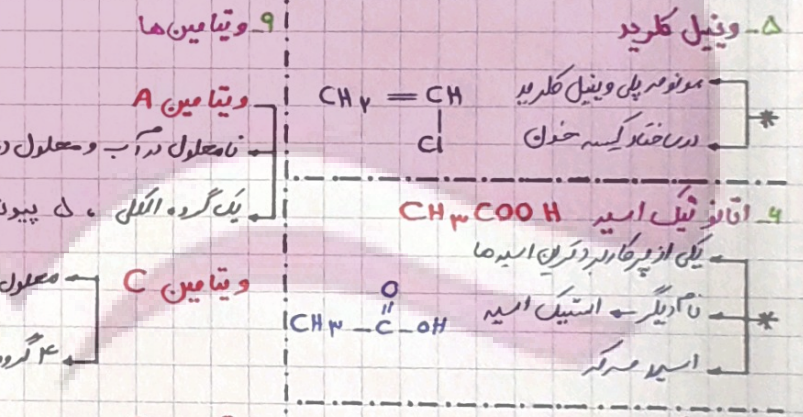 ۵_ وینیل کلرید
مونومر پلی وینیل کلرید
در ساختار کیسه خون
CH۲ = CH
Cl
۶_ اتانوئیک اسید CH۳COOH
یکی از پرکاربردترین اسیدها
نام دیگر ← استیک اسید
اسید سرکه
O
CH۳ _ C _ OH
۹_ ویتامین ها
ویتامین A
نامحلول در آب و محلول د
یک گروه الکلی ، ۵ پیون
ویتامین C
محلول
۴ گرو